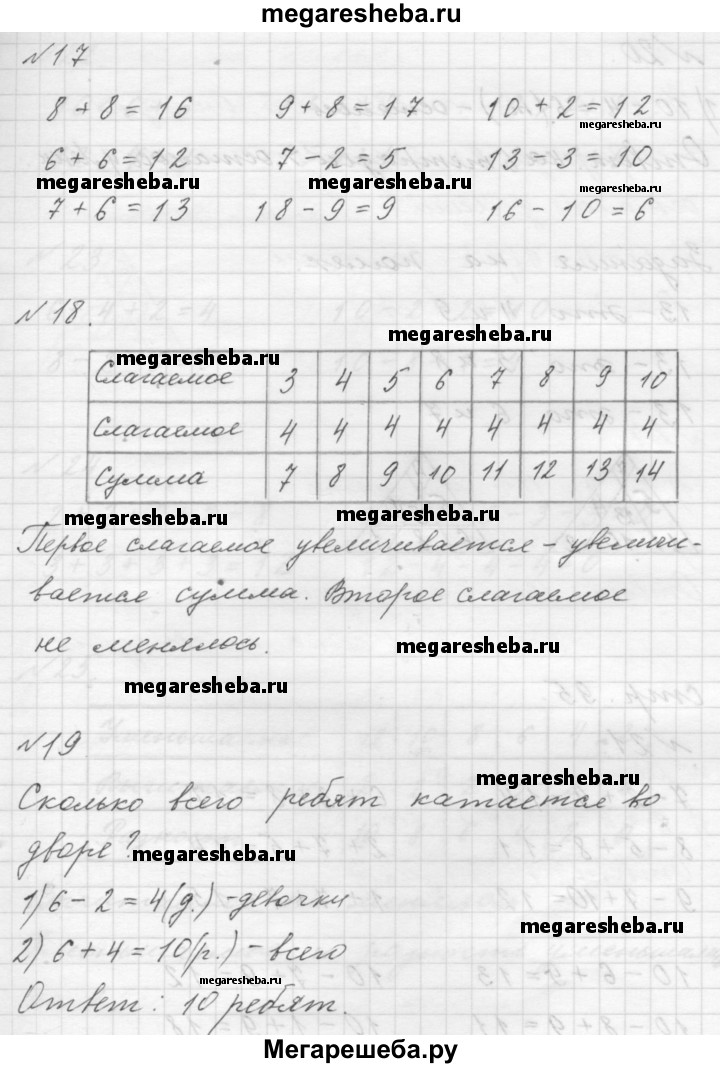 megaresheba.ru
№17
8 + 8 = 16 9 + 8 = 17 10 + 2 = 12
megaresheba.ru
6 + 6 = 12 7 - 2 = 5 13 - 3 = 10
megaresheba.ru megaresheba.ru megaresheba.ru
7 + 6 = 13 18 - 9 = 9 16 - 10 = 6
№18.
megaresheba.ru
megaresheba.ru
Слагаемое 3 4 5 6 7 8 9 10
Слагаемое 4 4 4 4 4 4 4 4
Сумма 7 8 9 10 11 12 13 14
megaresheba.ru megaresheba.ru
Первое слагаемое увеличивается - увеличи-
вается сумма. Второе слагаемое
не менялось.
megaresheba.ru
megaresheba.ru
№19
megaresheba.ru
Сколько всего ребят катается во
дворе?
megaresheba.ru
1) 6 - 2 = 4 (д.) - девочки
megaresheba.ru
2) 6 + 4 = 10 (р.) - всего
megaresheba.ru
Ответ: 10 ребят.
Мегарешеба.ру